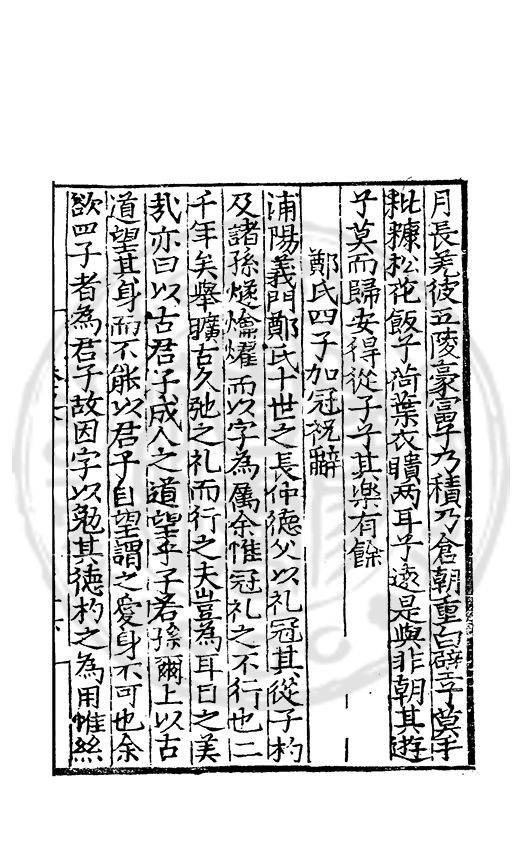 月長羌彼五陵豪富子乃積乃倉朝重白璧子莫子
粃糠松花飯子荷葉衣瞶两耳子遠是與非朝其遊
子莫而歸安得從子子其樂有餘
鄭氏四子加冠祝辭
浦陽義門鄭氏十世之長仲德父以礼冠其從子杓
及諸孫燧爚燿而以字為屬余惟冠礼之不行也二
千年矣舉曠古久弛之礼而行之夫豈為耳目之美
㢤亦曰以古君子成人之道望乎子若孫爾上以古
道望其身而不能以君子自望謂之愛身不可也余
欲四子者為君子故因字以勉其德杓之為用惟絲